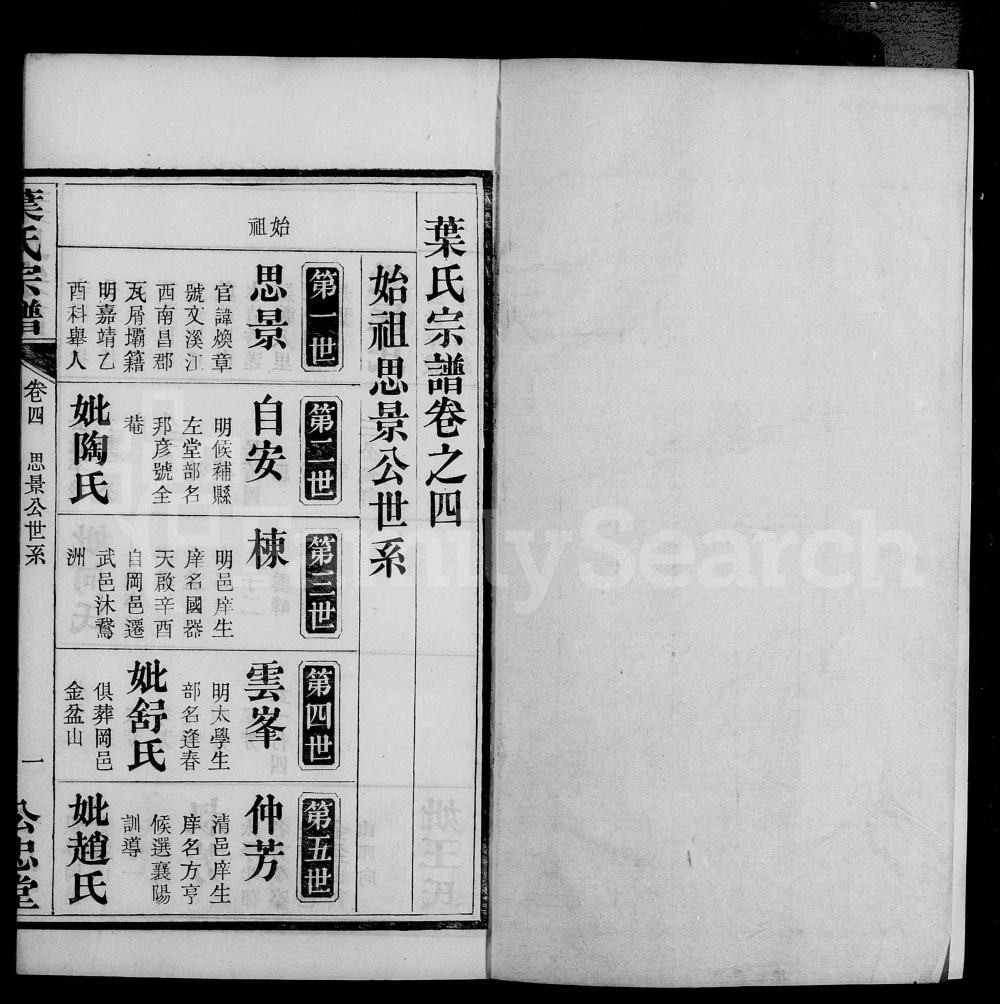 葉氏宗譜卷之四
始祖思景公世系
始祖
第一世
思景
官諱煥章
號文溪江
西南昌郡
瓦屑壩籍
明嘉靖乙
酉科舉人
第二世
自安
明候補縣
左堂部名
邦彥號全
菴
妣陶氏
第三世
棟
明邑庠生
庠名國器
天啟辛酉
自岡邑遷
武邑沐鵞
洲
第四世
雲峯
明太學生
部名逢春
妣舒氏
俱葬岡邑
金盆山
第五世
仲芳
清邑庠生
庠名方亨
候選襄陽
訓導
妣趙氏
葉氏宗譜
卷四
思景公世系
一
公忠堂
FamilySearch